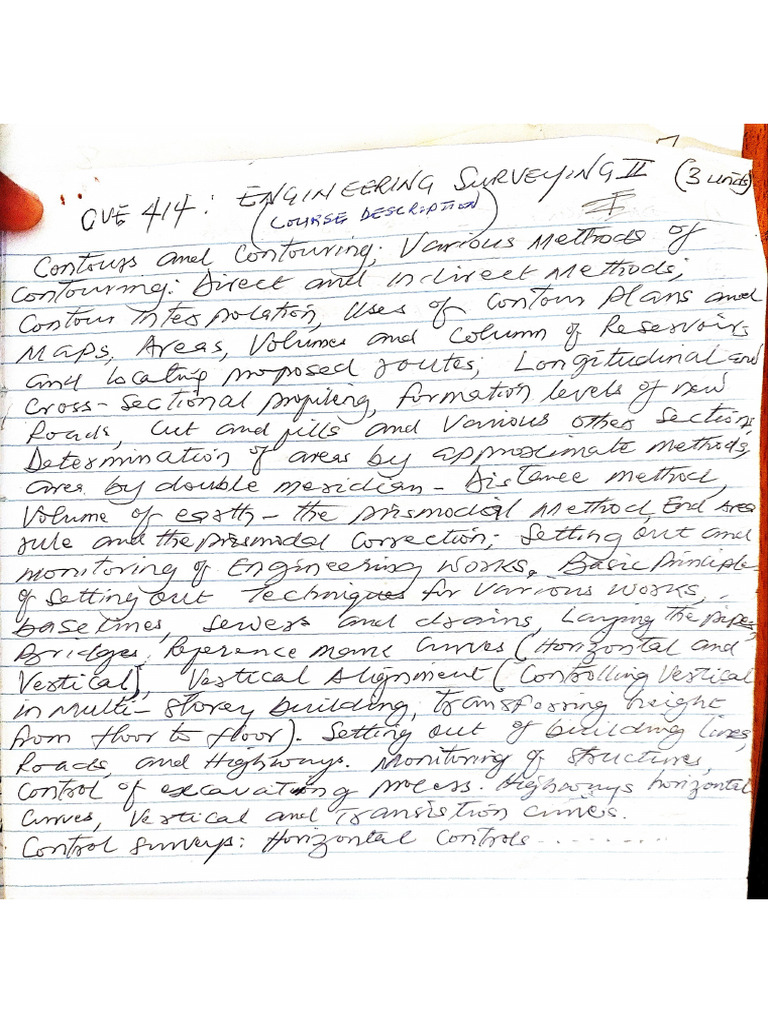 CVE 414: ENGINEERING SURVEYING II (3 units)
(COURSE DESCRIPTION)
Contours and Contouring; Various Methods of
Contouring: Direct and Indirect Methods;
Contour Interpolation, Uses of Contour Plans and
Maps, Areas, Volumes and Column of Reservoirs
and locating proposed routes; Longitudinal and
Cross-sectional profiling, formation levels of new
Roads, Cut and fills and Various other Sections,
Determination of areas by approximate Methods,
area by double meridian-Distance method,
Volume of earth - the prismodial Method, End Area
rule and the prismodal Correction; Setting out and
monitoring of Engineering Works. Basic Principle
of Setting out Techniques for Various Works,
baselines, Sewers and drains, Laying the pipes,
Bridges, Reference Curves (Horizontal and
Vertical), Vertical Alignment (Controlling Vertical
in Multi-Storey building, Transferring height
from floor to floor). Setting out of building lines,
Roads, and Highways. Monitoring of Structures,
Control of excavating process. Highways horizontal
Curves, Vertical and Transistion curves.
Control surveys: Horizontal Controls .........